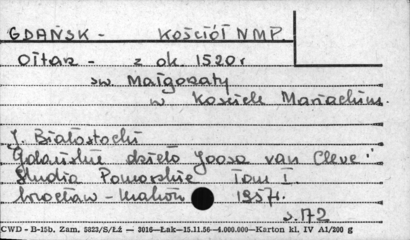 GDAŃSK - KOŚCIÓŁ NMP.
Ołtarz - z ok. 1520 r
św. Małgorzaty
w Kościele Mariackim.
J. Białostocki
Gdańskie dzieło Joosa van Cleve.
Studia Pomorskie Tom I.
Wrocław - Kraków 1957r.
s. 172
CWD - B-15b. Zam. 5823/S/Łż — 3016—Łak—15.11.56—4.000.000—Karton kl. IV A1/200 g